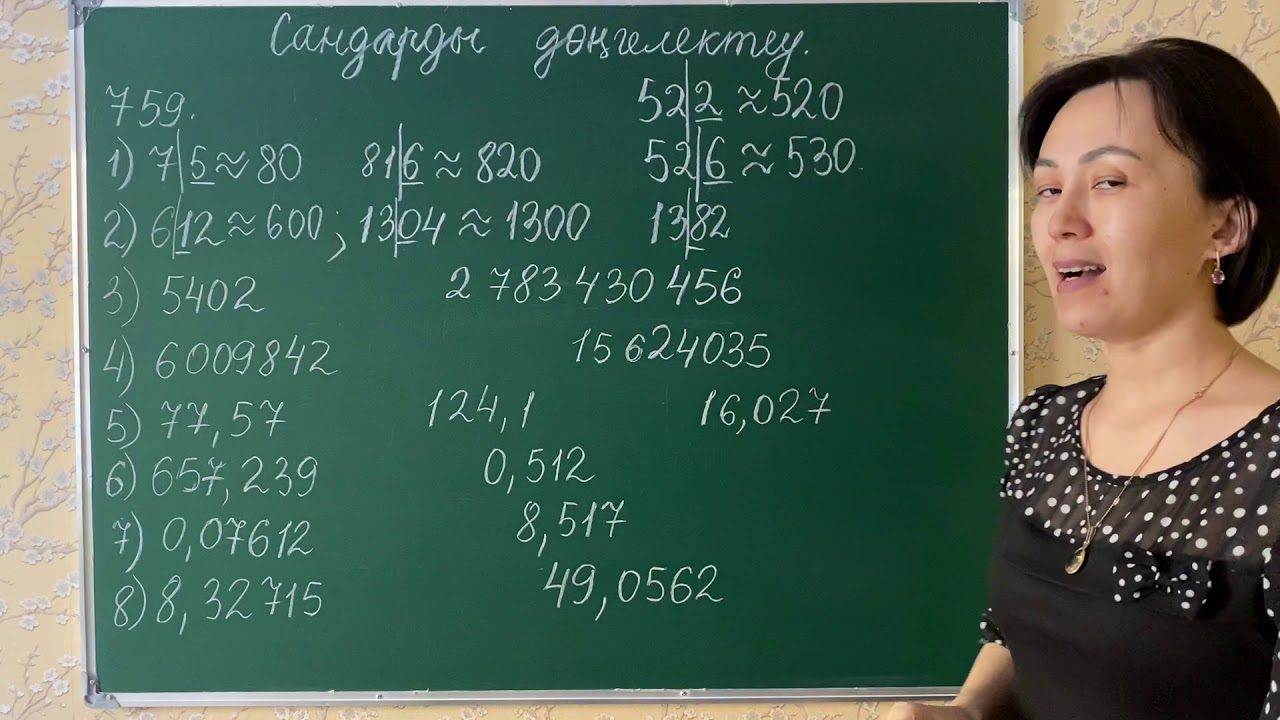 Сандарды дөңгелектеу.
759. 52|2 ≈ 520
1) 7|5 ≈ 80 81|6 ≈ 820 52|6 ≈ 530.
2) 6|12 ≈ 600; 13|04 ≈ 1300 13|82
3) 5402 2 783 430 456
4) 6009842 15 624035
5) 77,57 124,1 16,027
6) 657,239 0,512
7) 0,07612 8,517
8) 8,32715 49,0562